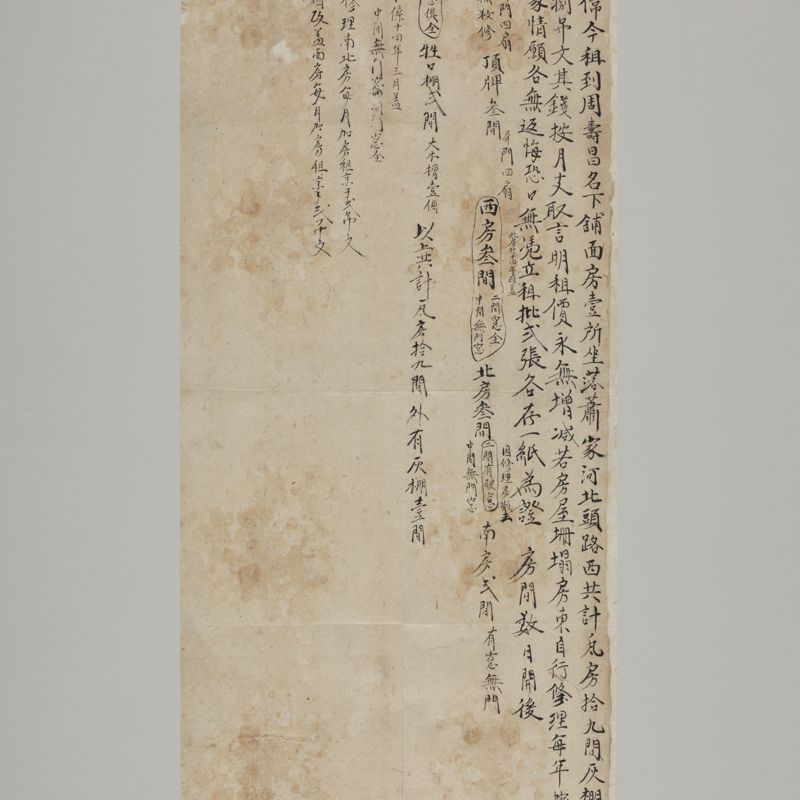 今租到周壽昌名下鋪面房壹所坐落蕭家河北頭路西共計瓦房拾九間灰棚
捌吊文其錢按月支取言明租價永無增減若房屋坍塌房東自行修理每年
家情願各無返悔恐口無凴立租批弍張各存一紙為證 房間数目開後
門四扇
無 修 頂牌叁間 屏門四扇
北房於十四年改蓋
西房叁間 二間窓全 中間無門窓
北房叁間 二間有破窓 中間無門窓
因修理房
南房弍間 有窓無門
牲口棚弍間 大木槽壹個
以上共計瓦房拾九間外有灰棚壹間
係十四年三月蓋
中間無門窓
修理南北房每月加房租京于弍吊文
改蓋西房每月加房租京